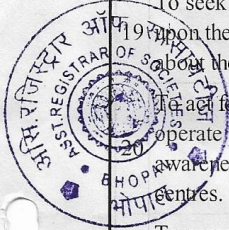 To seek
19 upon the
about the
To act f
operate
20
awarene
centres.
असि. रजिस्ट्रार ऑफ सोसायटीज
ASST. REGISTRAR OF SOCIETIES
BHOPAL
भोपाल